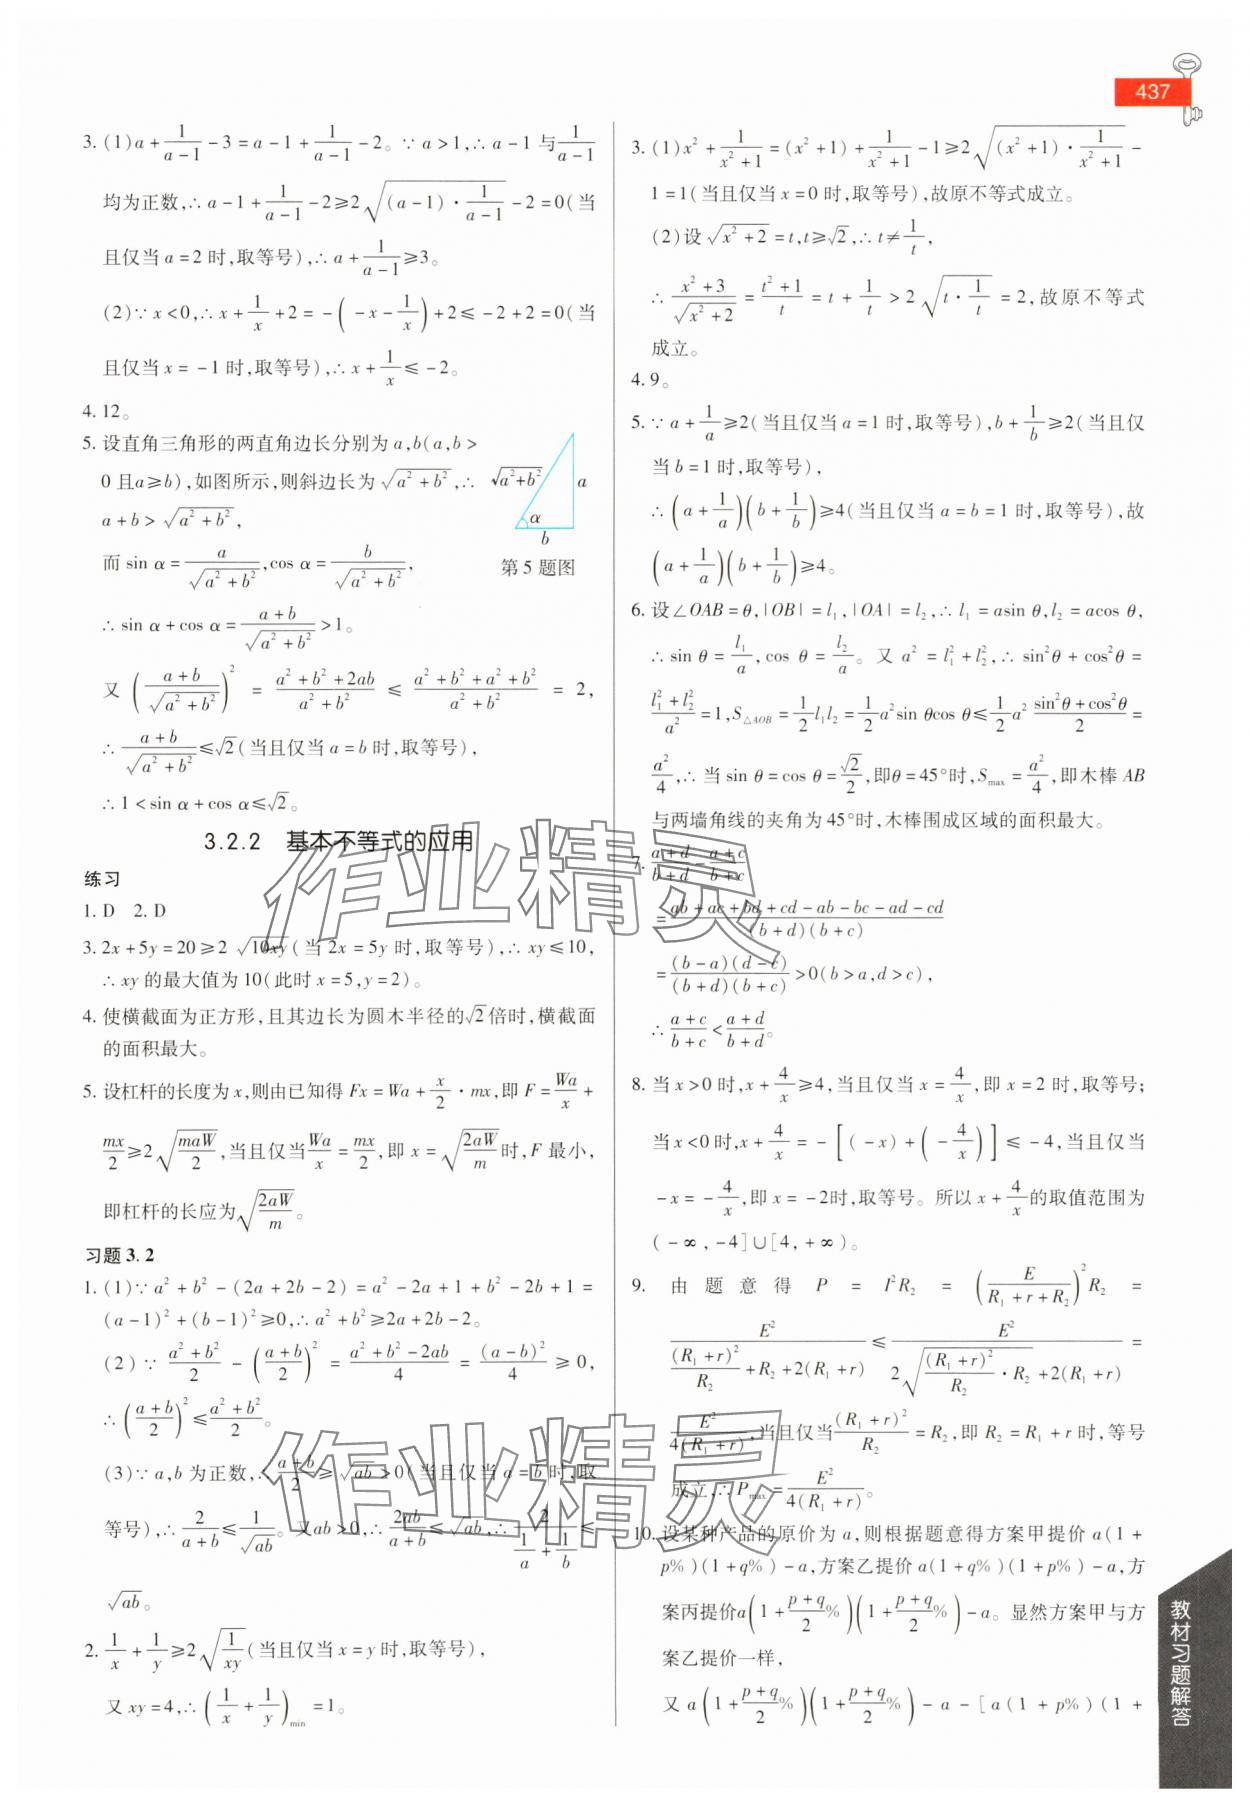 437
3. (1)a+1/(a-1)-3=a-1+1/(a-1)-2。∵a>1,∴a-1与1/(a-1)
均为正数,∴a-1+1/(a-1)-2≥2√((a-1)·1/(a-1))-2=0(当
且仅当a=2时,取等号),∴a+1/(a-1)≥3。
(2)∵x<0,∴x+1/x+2=-(-x-1/x)+2≤-2+2=0(当
且仅当x=-1时,取等号),∴x+1/x≤-2。
4. 12。
5. 设直角三角形的两直角边长分别为a,b(a,b>
0且a≥b),如图所示,则斜边长为√(a²+b²),∴
a+b>√(a²+b²),
而sin α=a/√(a²+b²),cos α=b/√(a²+b²),
√(a²+b²)
a
α
b
第5题图
∴sin α+cos α=(a+b)/√(a²+b²)>1。
又((a+b)/√(a²+b²))²=(a²+b²+2ab)/(a²+b²)≤(a²+b²+a²+b²)/(a²+b²)=2,
∴(a+b)/√(a²+b²)≤√2(当且仅当a=b时,取等号),
∴1<sin α+cos α≤√2。
3.2.2 基本不等式的应用
练习
1. D 2. D
3. 2x+5y=20≥2√(10xy)(当2x=5y时,取等号),∴xy≤10,
∴xy的最大值为10(此时x=5,y=2)。
4. 使横截面为正方形,且其边长为圆木半径的√2倍时,横截面
的面积最大。
5. 设杠杆的长度为x,则由已知得Fx=Wa+x/2·mx,即F=Wa/x+
mx/2≥2√(maW/2),当且仅当Wa/x=mx/2,即x=√(2aW/m)时,F最小,
即杠杆的长应为√(2aW/m)。
习题3.2
1. (1)∵a²+b²-(2a+2b-2)=a²-2a+1+b²-2b+1=
(a-1)²+(b-1)²≥0,∴a²+b²≥2a+2b-2。
(2)∵(a²+b²)/2-((a+b)/2)²=(a²+b²-2ab)/4=(a-b)²/4≥0,
∴((a+b)/2)²≤(a²+b²)/2。
(3)∵a,b为正数,∴(a+b)/2≥√(ab)>0(当且仅当a=b时,取
等号),∴2/(a+b)≤1/√(ab)。又ab>0,∴2ab/(a+b)≤√(ab),∴2/(1/a+1/b)≤
√(ab)。
2. 1/x+1/y≥2√(1/(xy))(当且仅当x=y时,取等号),
又xy=4,∴(1/x+1/y)min=1。
3. (1)x²+1/(x²+1)=(x²+1)+1/(x²+1)-1≥2√((x²+1)·1/(x²+1))-
1=1(当且仅当x=0时,取等号),故原不等式成立。
(2)设√(x²+2)=t,t≥√2,∴t≠1/t,
∴(x²+3)/√(x²+2)=(t²+1)/t=t+1/t>2√(t·1/t)=2,故原不等式
成立。
4. 9。
5. ∵a+1/a≥2(当且仅当a=1时,取等号),b+1/b≥2(当且仅
当b=1时,取等号),
∴(a+1/a)(b+1/b)≥4(当且仅当a=b=1时,取等号),故
(a+1/a)(b+1/b)≥4。
6. 设∠OAB=θ,|OB|=l₁,|OA|=l₂,∴l₁=asin θ,l₂=acos θ,
∴sin θ=l₁/a,cos θ=l₂/a。又a²=l₁²+l₂²,∴sin²θ+cos²θ=
(l₁²+l₂²)/a²=1,S△AOB=1/2l₁l₂=1/2a²sin θcos θ≤1/2a²(sin²θ+cos²θ)/2=
a²/4,∴当sin θ=cos θ=√2/2,即θ=45°时,Smax=a²/4,即木棒AB
与两墙角线的夹角为45°时,木棒围成区域的面积最大。
7. (a+d)/(b+d)-(a+c)/(b+c)
=(ab+ac+bd+cd-ab-bc-ad-cd)/((b+d)(b+c))
=(b-a)(d-c)/((b+d)(b+c))>0(b>a,d>c),
∴(a+c)/(b+c)<(a+d)/(b+d)。
8. 当x>0时,x+4/x≥4,当且仅当x=4/x,即x=2时,取等号;
当x<0时,x+4/x=-[(-x)+(-4/x)]≤-4,当且仅当
-x=-4/x,即x=-2时,取等号。所以x+4/x的取值范围为
(-∞,-4]∪[4,+∞)。
9. 由题意得P=I²R₂=(E/(R₁+r+R₂))²R₂=
E²/((R₁+r)²/R₂+R₂+2(R₁+r))≤E²/(2√((R₁+r)²/R₂·R₂)+2(R₁+r))=
E²/(4(R₁+r)),当且仅当(R₁+r)²/R₂=R₂,即R₂=R₁+r时,等号
成立,∴Pmax=E²/(4(R₁+r))。
10. 设某种产品的原价为a,则根据题意得方案甲提价a(1+
p%)(1+q%)-a,方案乙提价a(1+q%)(1+p%)-a,方
案丙提价a(1+(p+q)/2%)(1+(p+q)/2%)-a。显然方案甲与方
案乙提价一样,
又a(1+(p+q)/2%)(1+(p+q)/2%)-a-[a(1+p%)(1+
教材习题解答
作业精灵
作业精灵